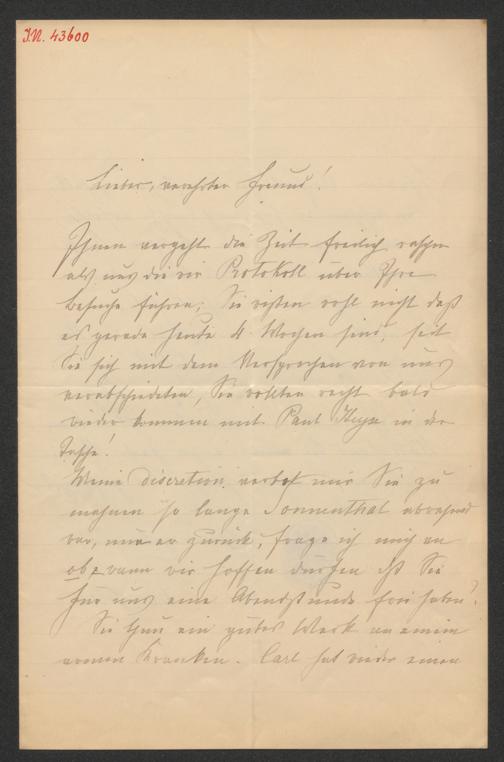 I.N. 43600
Lieber, verehrter Freund!
Ihnen vergeht die Zeit freilich rascher
als uns die wir Protokoll über Ihre
Besuche führen; Sie wissen wohl nicht daß
es gerade heute 4 Wochen sind, seit
Sie sich mit dem Versprechen von uns
verabschiedeten, Sie wollten recht bald
wieder kommen mit Paul Heyse in der
Tasche!
Meine Discretion verbot mir Sie zu
mahnen so lange Sonnenthal abwesend
war, nun er zurück, frage ich mich an
ob & wann wir hoffen dürfen daß Sie
für uns eine Abendstunde frei haben?
Sie thun ein gutes Werk an einem
armen Kranken. Carl hat wieder einen